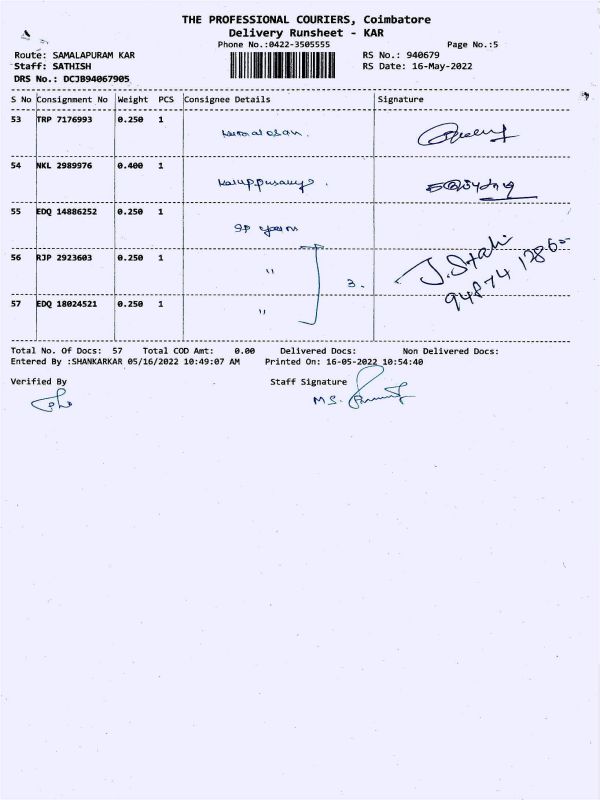 THE PROFESSIONAL COURIERS, Coimbatore
Delivery Runsheet - KAR
Phone No.:0422-3505555 Page No.:5
Route: SAMALAPURAM KAR RS No.: 940679
Staff: SATHISH RS Date: 16-May-2022
DRS No.: DCJB94067905
S No Consignment No Weight PCS Consignee Details Signature
53 TRP 7176993 0.250 1
54 NKL 2989976 0.400 1 Karuppusamy.
55 EDQ 14886252 0.250 1
56 RJP 2923603 0.250 1 "
3.
57 EDQ 18024521 0.250 1 "
Total No. Of Docs: 57 Total COD Amt: 0.00 Delivered Docs: Non Delivered Docs:
Entered By :SHANKARKAR 05/16/2022 10:49:07 AM Printed On: 16-05-2022 10:54:40
Verified By Staff Signature
M.S.